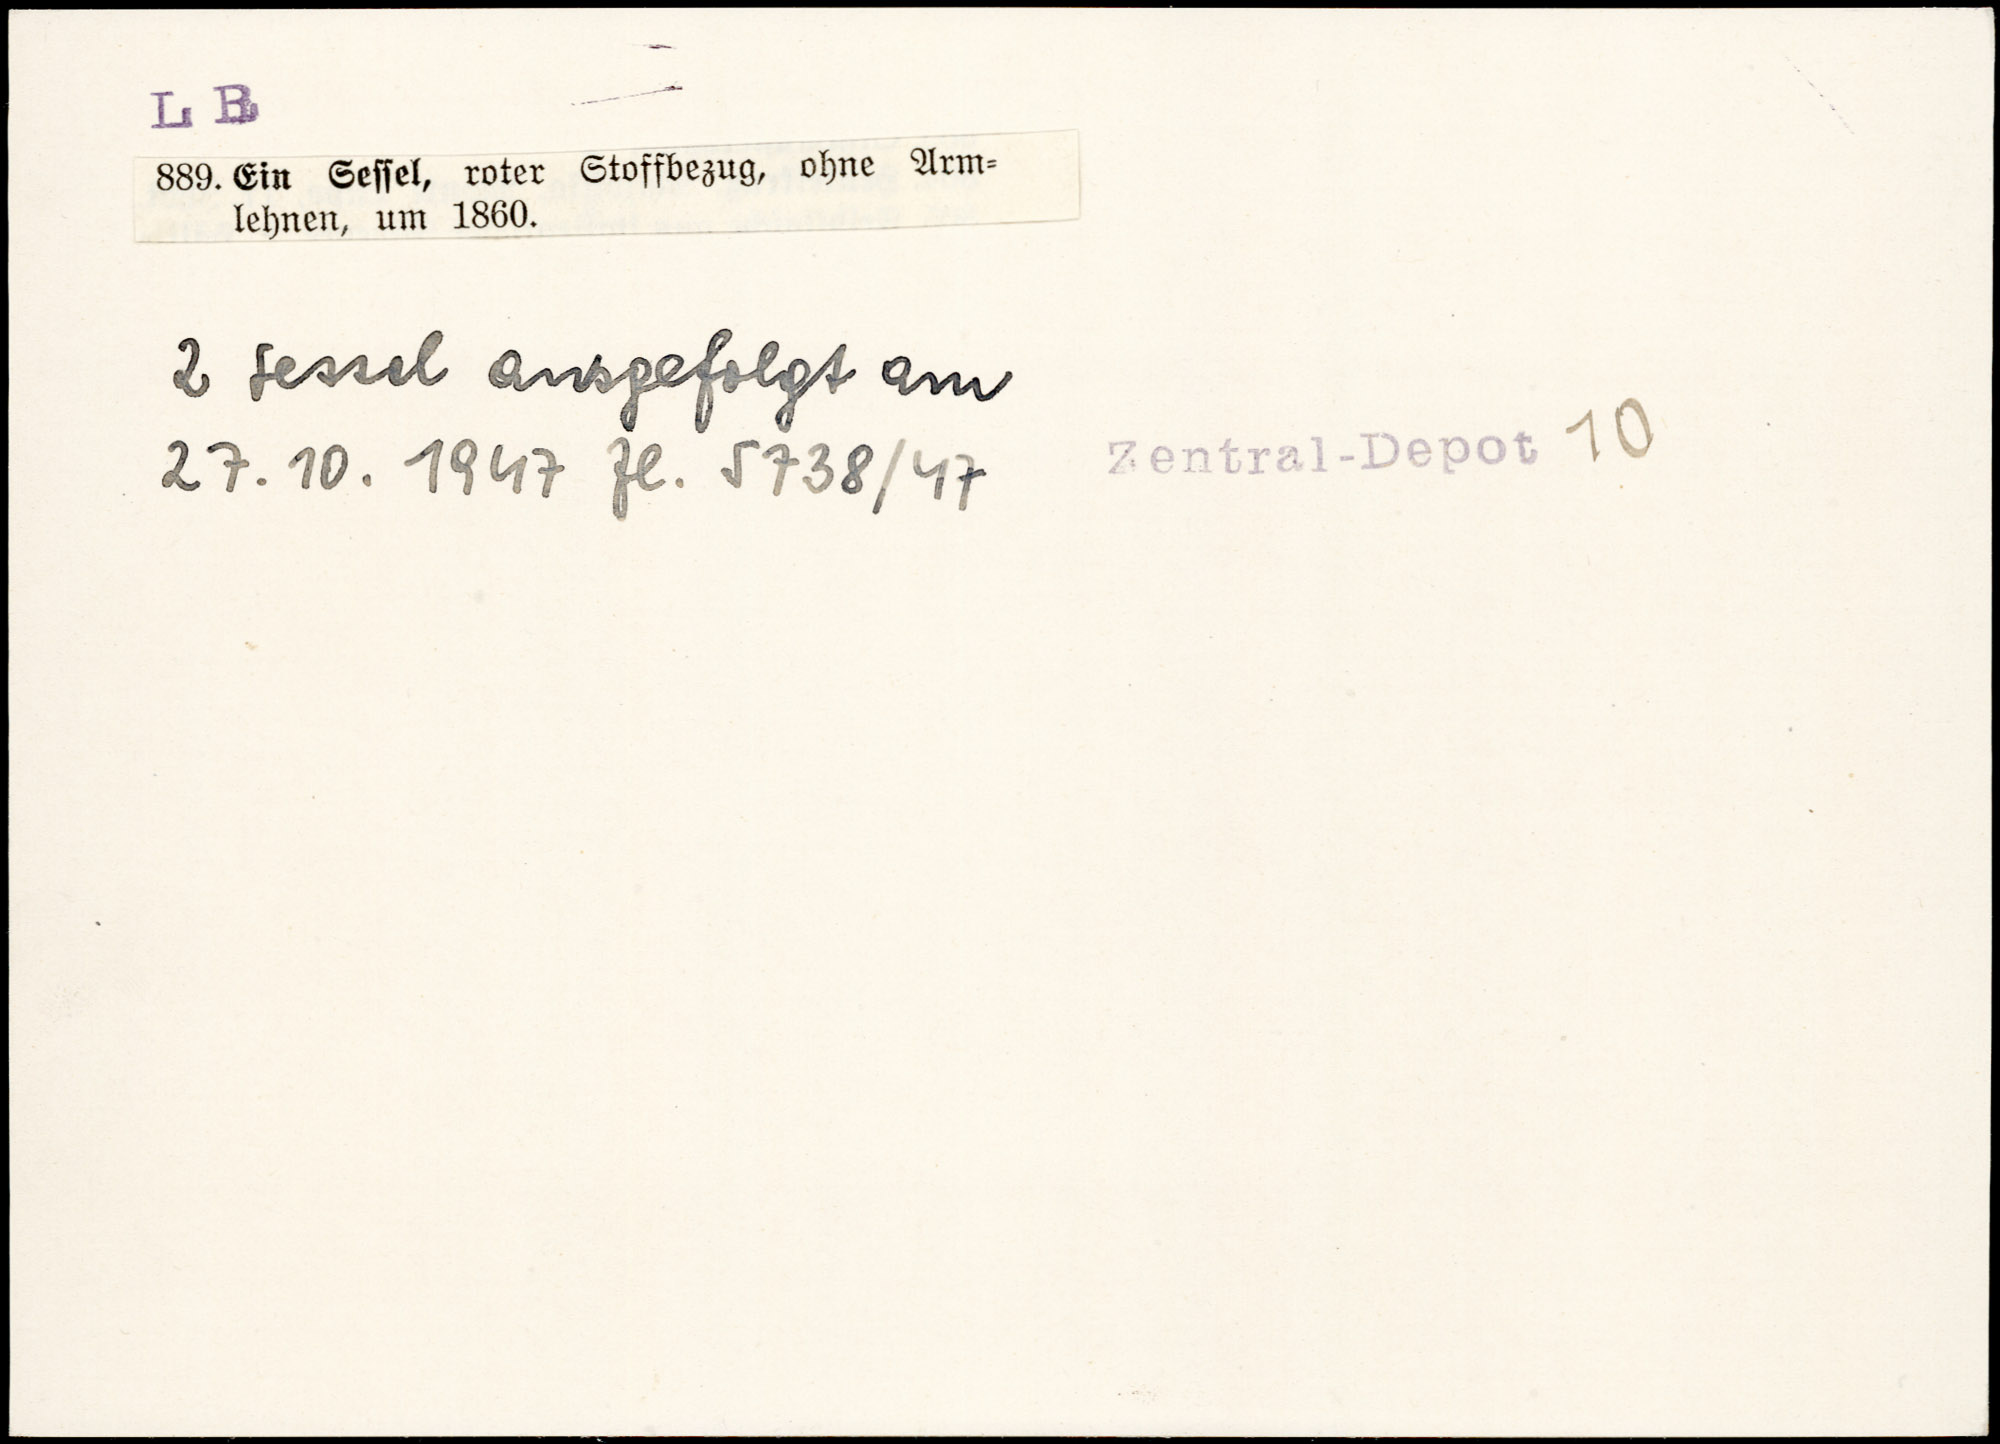 LB
889. Ein Sessel, roter Stoffbezug, ohne Arm-
lehnen, um 1860.
2 Sessel ausgefolgt am
27. 10. 1947 Zl. 5738/47
Zentral-Depot 10